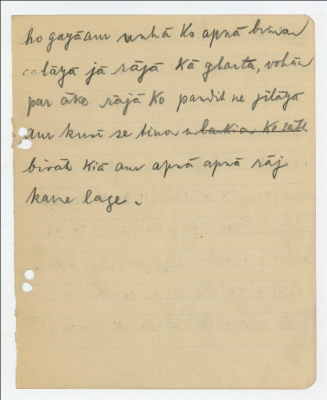 ho gayā aur unhā ko apnā biman
calāyā jā rājā kā ghar thā, vohān
par āke rājā ko pandit ne jilāyā
aur kuni se tino larkia ke sath
bivāh kiā aur apnā apnā rāj
karne lage.